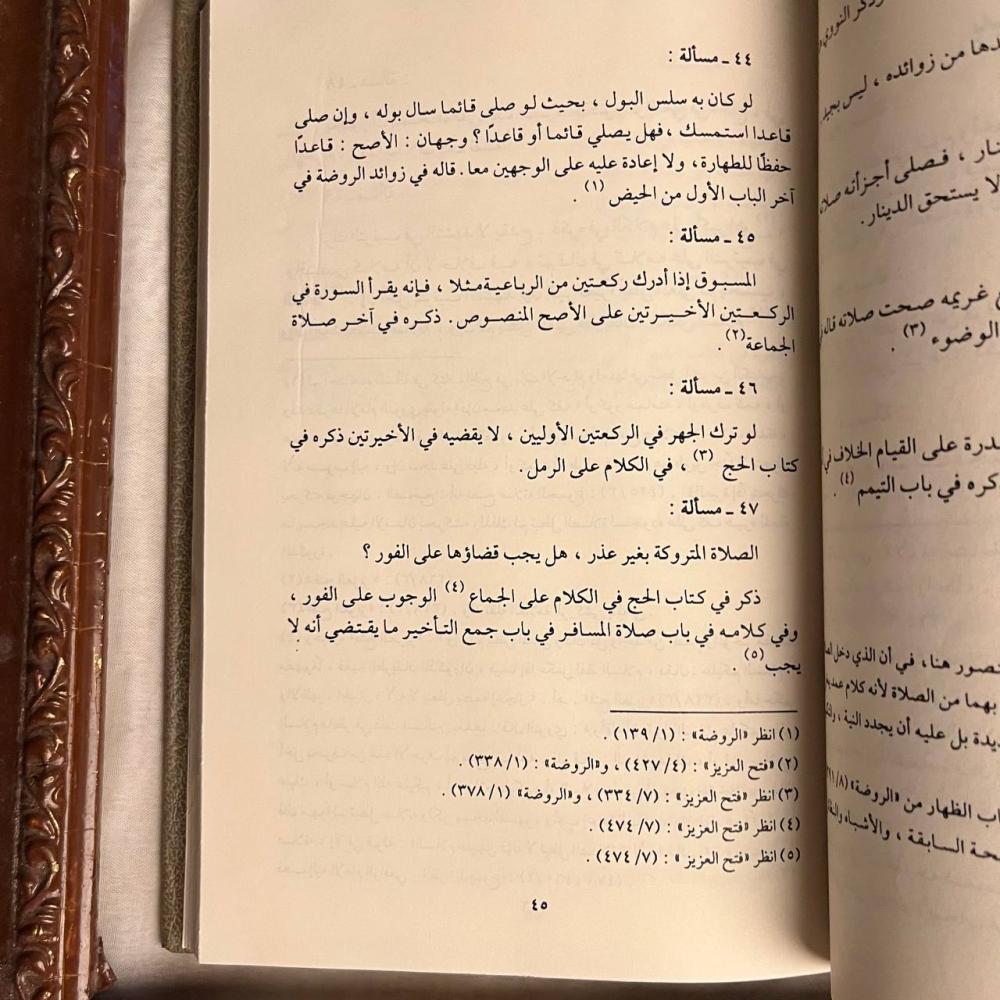 ٤٤ ـ مسألة :
لو كان به سلس البول ، بحيث لو صلى قائما سال بوله ، وإن صلى
قاعدا استمسك ، فهل يصلي قائما أو قاعدًا ؟ وجهان : الأصح : قاعدًا
حفظًا للطهارة ، ولا إعادة عليه على الوجهين معا . قاله في زوائد الروضة في
آخر الباب الأول من الحيض (١) .
٤٥ ـ مسألة :
المسبوق إذا أدرك ركعتين من الرباعية مثلا ، فإنه يقرأ السورة في
الركعتين الأخيرتين على الأصح المنصوص . ذكره في آخر صلاة
الجماعة (٢) .
٤٦ ـ مسألة :
لو ترك الجهر في الركعتين الأوليين ، لا يقضيه في الأخيرتين ذكره في
كتاب الحج (٣) ، في الكلام على الرمل .
٤٧ ـ مسألة :
الصلاة المتروكة بغير عذر ، هل يجب قضاؤها على الفور ؟
ذكر في كتاب الحج في الكلام على الجماع (٤) الوجوب على الفور ،
وفي كلامه في باب صلاة المسافر في باب جمع التأخير ما يقتضي أنه لا
يجب (٥) .
(١) انظر «الروضة» : (١/ ١٣٩) .
(٢) «فتح العزيز» : (٤/ ٤٢٧) ، و«الروضة» : (١/ ٣٣٨) .
(٣) انظر «فتح العزيز» : (٧/ ٣٣٤) ، و«الروضة» (١/ ٣٧٨) .
(٤) انظر «فتح العزيز» : (٧/ ٤٧٤) .
(٥) انظر «فتح العزيز» : (٧/ ٤٧٤) .
٤٥
وذكر النووي
من زوائده ، ليس بجيد
، فصلى أجزأته
لا يستحق الدينار .
غريمه صحت صلاته قاله
الوضوء (٣) .
على القيام الخلاف في
ذكره في باب التيمم (٤) .
هنا ، في أن الذي دخل
بهما من الصلاة لأنه كلام
بل عليه أن يجدد النية ،
الظهار من «الروضة»
السابقة ، والأشباه